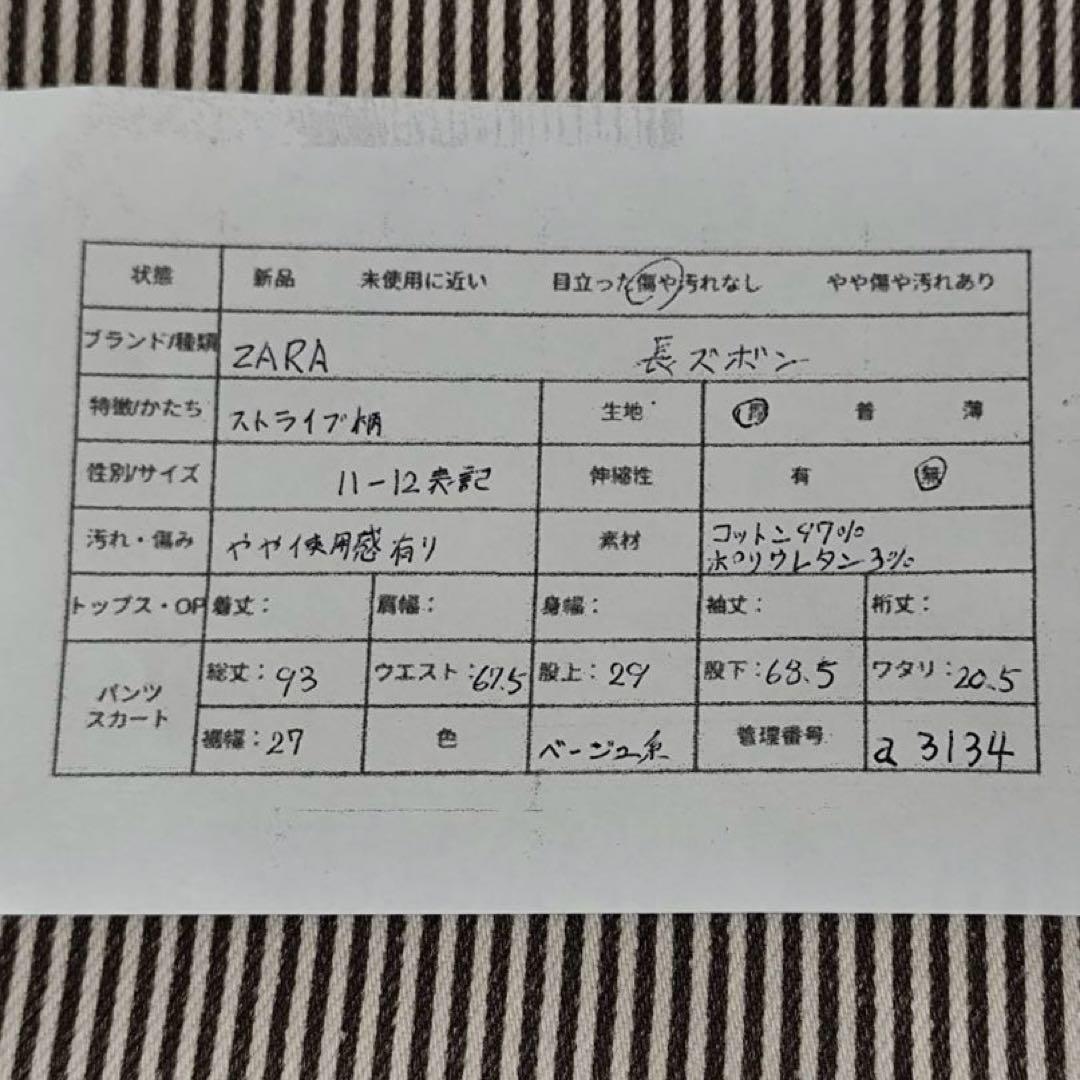 状態 新品 未使用に近い 目立った傷や汚れなし やや傷や汚れあり
ブランド/種類 ZARA 長ズボン
特徴/かたち ストライプ柄 生地 厚 普 薄
性別/サイズ 11-12表記 伸縮性 有 無
汚れ・傷み やや使用感有り 素材 コットン97%
ポリウレタン3%
トップス・OP 着丈: 肩幅: 身幅: 袖丈: 裄丈:
パンツ
スカート
総丈:93 ウエスト:67.5 股上:29 股下:68.5 ワタリ:20.5
裾幅:27 色 ベージュ系 管理番号 a3134